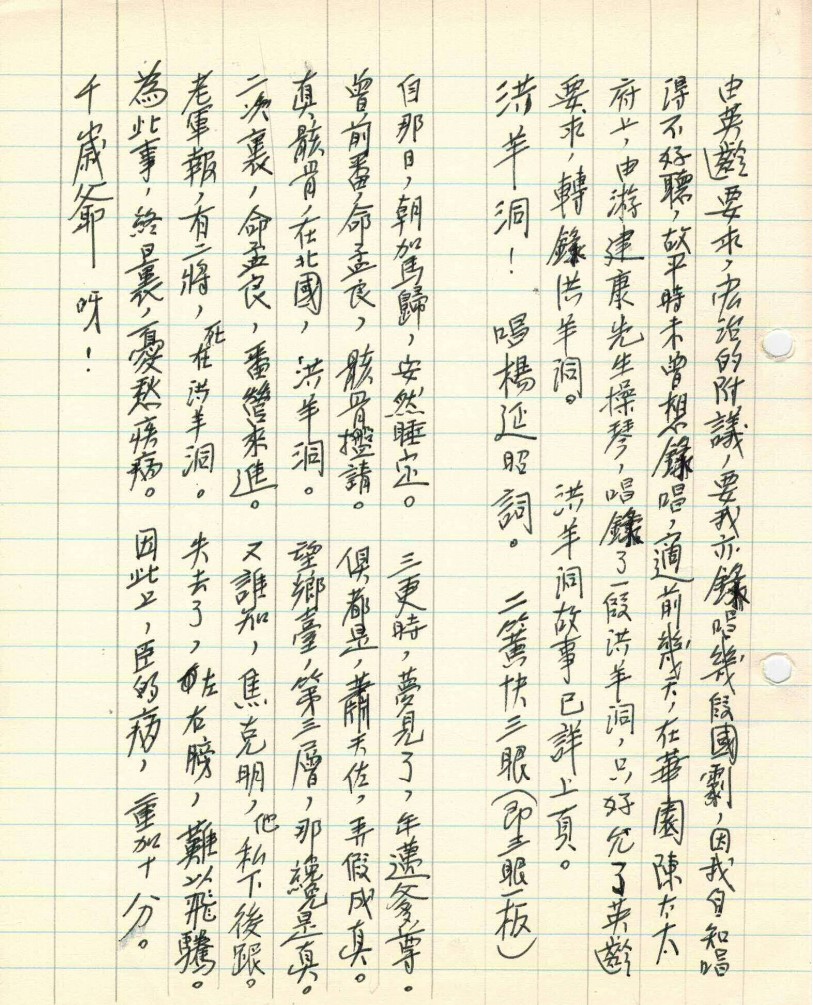 由英齡要求，宏治的附議，要我亦錄唱幾段國劇，因我自知唱
得不好聽，故平時未曾想錄唱，適前幾天，在華園陳太太
府上，由游建康先生操琴，唱錄了一段洪羊洞，只好允了英齡
要求，轉錄洪羊洞。 洪羊洞故事已詳上頁。
洪羊洞！ 唱楊延昭詞。 二簧快三眼（即三眼一板）
自那日，朝駕歸，安然睡定。 三更時，夢見了，年邁爹尊。
曾前番，命孟良，骸骨搬請。 俱都是，蕭天佐，弄假成真。
真骸骨，在北國，洪羊洞。 望鄉臺，第三層，那纔是真。
二次裏，命孟良，番營來進。 又誰知，焦克明，他私下後跟。
老軍報，有二將，死在洪羊洞。 失去了，左右膀，難以飛騰。
為此事，終日裏，憂愁疾病。 因此上，臣的病，重加十分。
千歲爺呀！